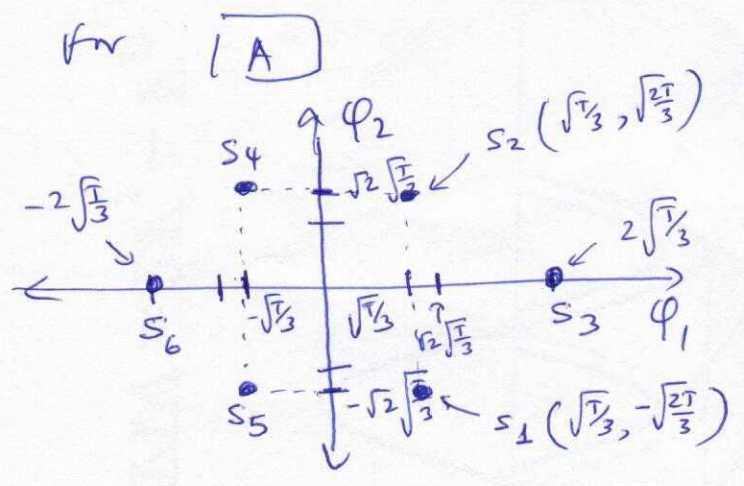 for [A]
φ₂
S4
√2 √T/3
S₂ (√T/3, √2T/3)
-2√T/3
2√T/3
S₆
-√T/3
√T/3
√2√T/3
S₃
φ₁
S₅
-√2 √T/3
S₁ (√T/3, -√2T/3)